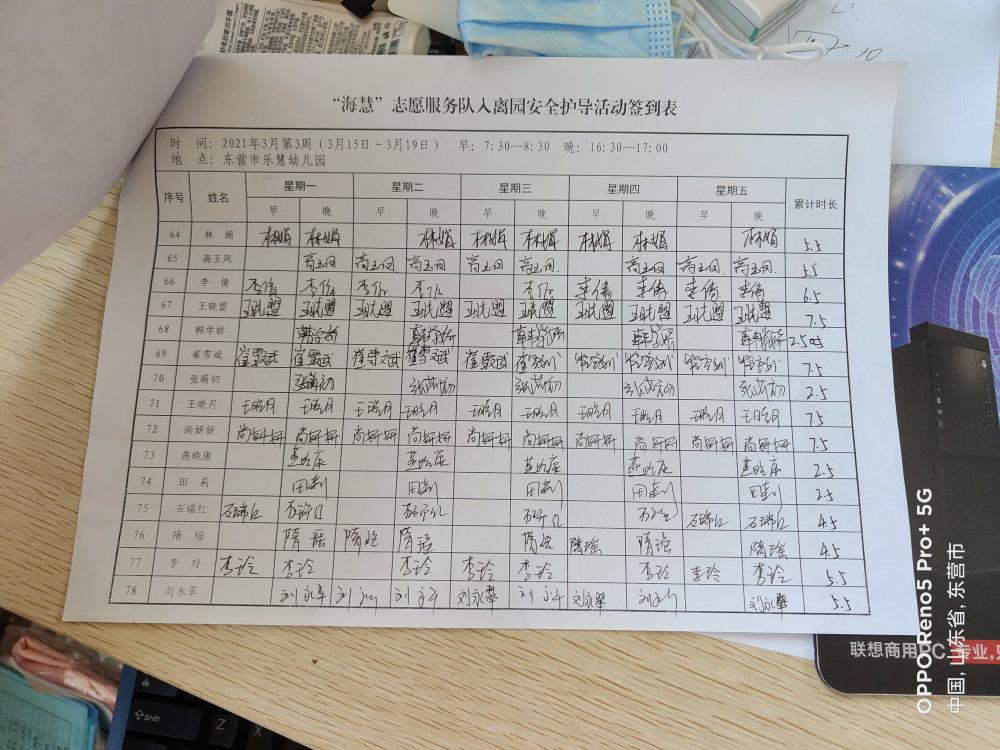 “海慧”志愿服务队入离园安全护导活动签到表
时 间: 2021年3月第3周（3月15日-3月19日） 早: 7:30--8:30 晚: 16:30--17:00
地 点: 东营市乐慧幼儿园
序号 姓名 星期一 星期二 星期三 星期四 星期五 累计时长
早 晚 早 晚 早 晚 早 晚 早 晚
64 林 娟 林娟 林娟 林娟 林娟 林娟 林娟 林娟 林娟 5.5
65 高玉凤 高玉凤 高玉凤 高玉凤 高玉凤 高玉凤 高玉凤 高玉凤 高玉凤 5.5
66 李 倩 李倩 李倩 李倩 李倩 李倩 李倩 李倩 李倩 李倩 6.5
67 王晓盟 王晓盟 王晓盟 王晓盟 王晓盟 王晓盟 王晓盟 王晓盟 王晓盟 王晓盟 王晓盟 7.5
68 韩学娇 韩学娇 韩学娇 韩学娇 韩学娇 韩学娇 2.5时
69 崔雪斌 崔雪斌 崔雪斌 崔雪斌 崔雪斌 崔雪斌 崔雪斌 崔雪斌 崔雪斌 崔雪斌 崔雪斌 7.5
70 张萌初 张萌初 张萌初 张萌初 张萌初 张萌初 2.5
71 王晓月 王晓月 王晓月 王晓月 王晓月 王晓月 王晓月 王晓月 王晓月 王晓月 王晓月 7.5
72 尚妍妍 尚妍妍 尚妍妍 尚妍妍 尚妍妍 尚妍妍 尚妍妍 尚妍妍 尚妍妍 尚妍妍 尚妍妍 7.5
73 燕晓康 燕晓康 燕晓康 燕晓康 燕晓康 燕晓康 2.5
74 田 莉 田莉 田莉 田莉 田莉 田莉 2.5
75 石瑞红 石瑞红 石瑞红 石瑞红 石瑞红 石瑞红 石瑞红 石瑞红 4.5
76 隋 瑶 隋瑶 隋瑶 隋瑶 隋瑶 隋瑶 隋瑶 隋瑶 4.5
77 李 玲 李玲 李玲 李玲 李玲 李玲 李玲 李玲 李玲 5.5
78 刘永翠 刘永翠 刘永翠 刘永翠 刘永翠 刘永翠 刘永翠 刘永翠 刘永翠 5.5
联想商用PC 专业,
Shift
Z
X
OPPO Reno5 Pro+ 5G
中国, 山东省, 东营市